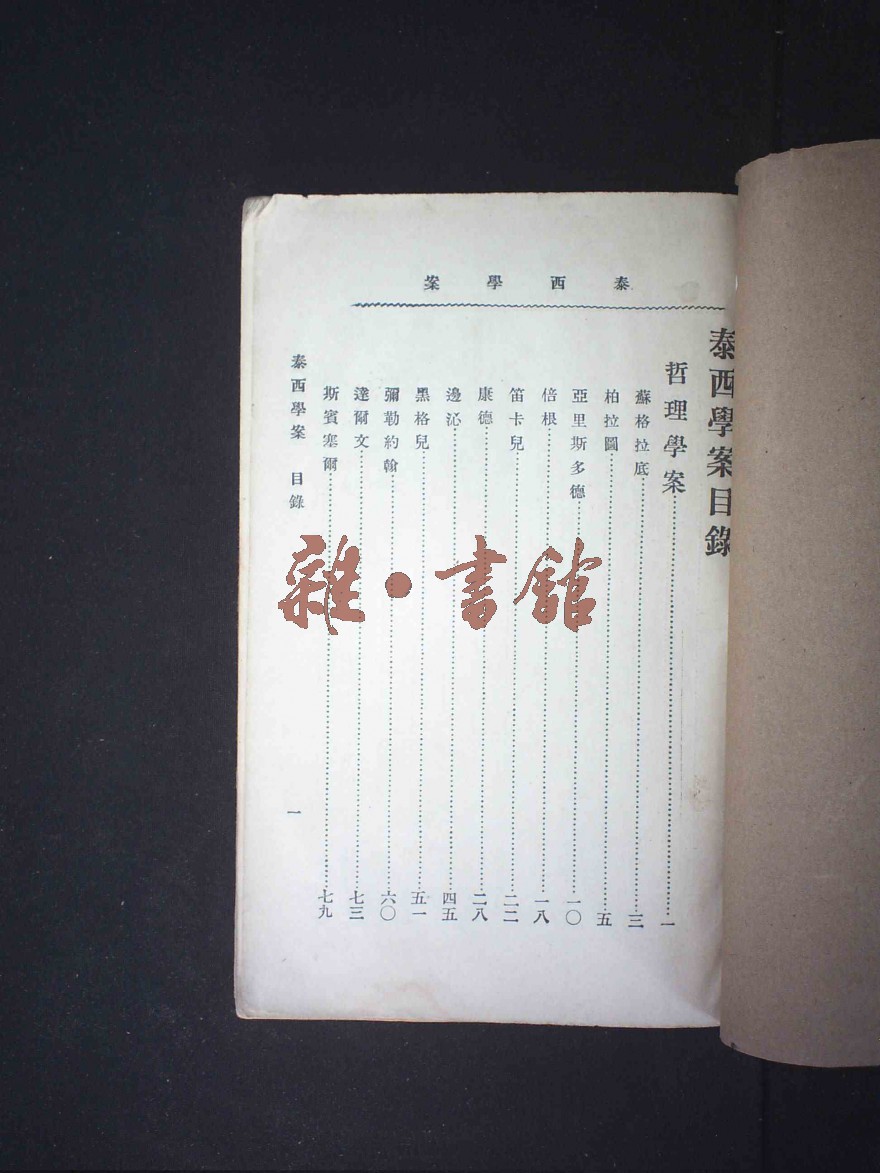 泰西學案
泰西學案目錄
哲理學案⋯⋯一
蘇格拉底⋯⋯三
柏拉圖⋯⋯五
亞里斯多德⋯⋯一〇
倍根⋯⋯一八
笛卡兒⋯⋯二二
康德⋯⋯二八
邊沁⋯⋯四五
黑格兒⋯⋯五一
彌勒約翰⋯⋯六〇
達爾文⋯⋯七三
斯賓塞爾⋯⋯七九
泰西學案 目錄 一
雜·書館